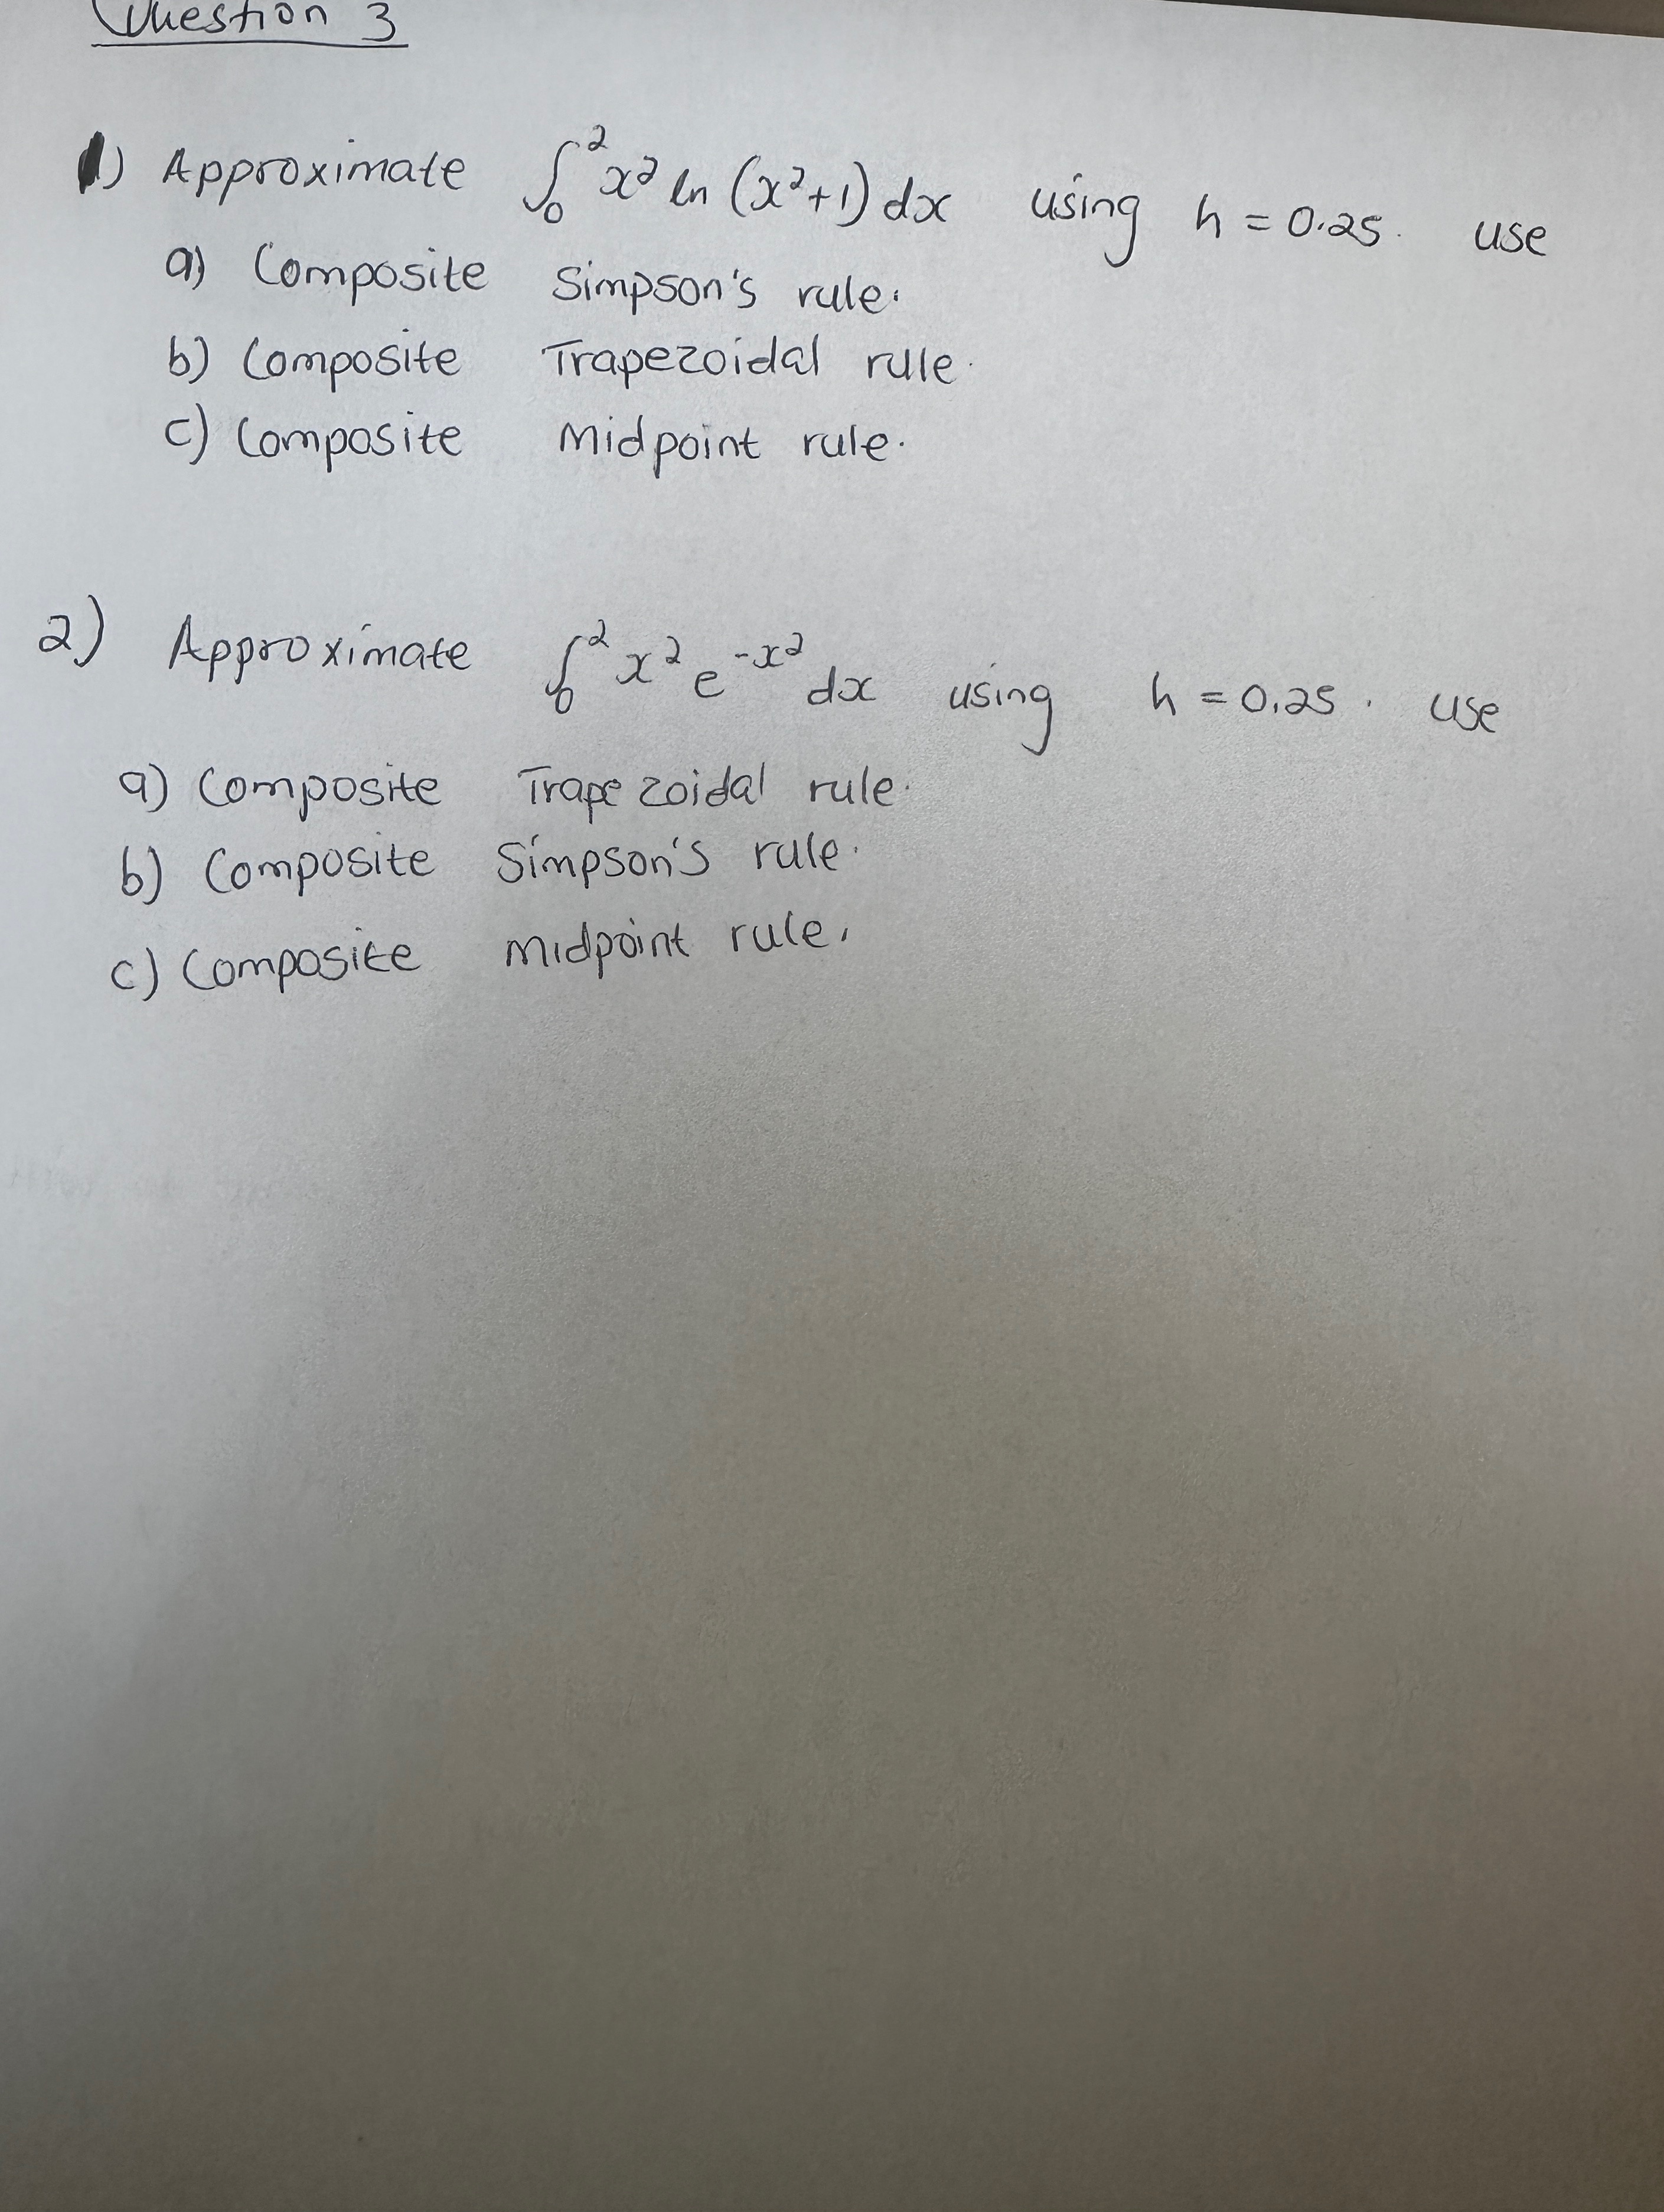 Question 3
1) Approximate ∫₀² x² ln (x²+1) dx using h = 0.25. use
a) Composite Simpson's rule.
b) Composite Trapezoidal rule.
c) Composite Midpoint rule.
2) Approximate ∫₀² x² e^(-x²) dx using h = 0.25. use
a) Composite Trapezoidal rule.
b) Composite Simpson's rule.
c) Composite midpoint rule.